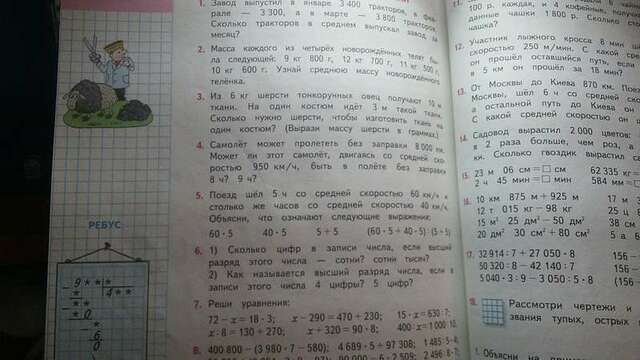 1. Завод выпустил в январе 3 400 тракторов, в фев-
рале — 3 300, а в марте — 3 800 тракторов.
Сколько тракторов в среднем выпускал завод за
месяц?
2. Масса каждого из четырёх новорождённых телят бы-
ла следующей: 9 кг 800 г, 12 кг 700 г, 11 кг 500 г,
10 кг 600 г. Узнай среднюю массу новорождённого
телёнка.
3. Из 6 кг шерсти тонкорунных овец получают 10 м
ткани. На один костюм идёт 3 м такой ткани.
Сколько нужно шерсти, чтобы изготовить ткань на
один костюм? (Вырази массу шерсти в граммах.)
4. Самолёт может пролететь без заправки 8 000 км.
Может ли этот самолёт, двигаясь со средней ско-
ростью 950 км/ч, быть в полёте без заправки
8 ч? 9 ч?
5. Поезд шёл 5 ч со средней скоростью 60 км/ч и
столько же часов со средней скоростью 40 км/ч.
Объясни, что означают следующие выражения:
60 · 5 40 · 5 5 + 5 (60 · 5 + 40 · 5) : (5 + 5)
6. 1) Сколько цифр в записи числа, если высший
разряд этого числа — сотни? сотни тысяч?
2) Как называется высший разряд числа, если в
записи этого числа 4 цифры? 5 цифр?
7. Реши уравнения:
72 − x = 18 · 3; x − 290 = 470 + 230; 15 · x = 630 : 7;
x · 8 = 130 + 270; x + 320 = 90 · 8; 400 : x = 1 000 : 10.
8. 400 800 − (3 980 · 7 − 580); 4 689 · 5 + 97 308;
РЕБУС:
100 р. каждая, и 4 кофейные,
данные чашки 1 800 р. Сколько
чашка?
12. Участник лыжного кросса 8 мин
скоростью 250 м/мин. С какой
он прошёл оставшийся путь, если
в 5 км он прошёл за 18 мин?
13. От Москвы до Киева 870 км. Поезд
Москвы, шёл 6 ч со средней
а остальной путь до Киева он
С какой средней скоростью он
14. Садовод вырастил 2 000 цветов:
в 2 раза больше, чем роз, а
ки. Сколько гвоздик вырастил
15. 23 м 06 см = □ см 62 335 кг =
2 ч 45 мин = □ мин 584 мм =
16. 10 км 875 м + 925 м 17 м
12 т 015 кг − 98 кг 25 ц
15 м² 25 дм² − 50 дм² 38 см
20 дм² 30 см² + 80 см² 5 а
17. 32 914 : 7 + 27 050 · 8 (156 −
50 320 : 8 − 42 140 : 7 (156 −
5 040 · 3 : 9 − 3 050 : 5 · 8 (156
18. Рассмотри чертежи и
звания тупых, острых
1. Объясни на